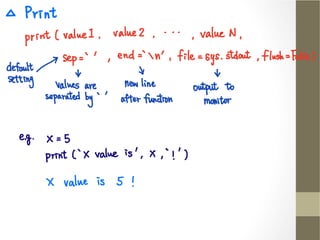 △ Print
print ( value 1 , value 2 , ··· , value N ,
sep = ` ' , end = `\n' , file = sys. stdout , flush = False )
default setting
values are separated by ` '
new line after function
output to monitor
e.g. x = 5
print ( ` x value is ' , x , ` ! ' )
x value is 5 !